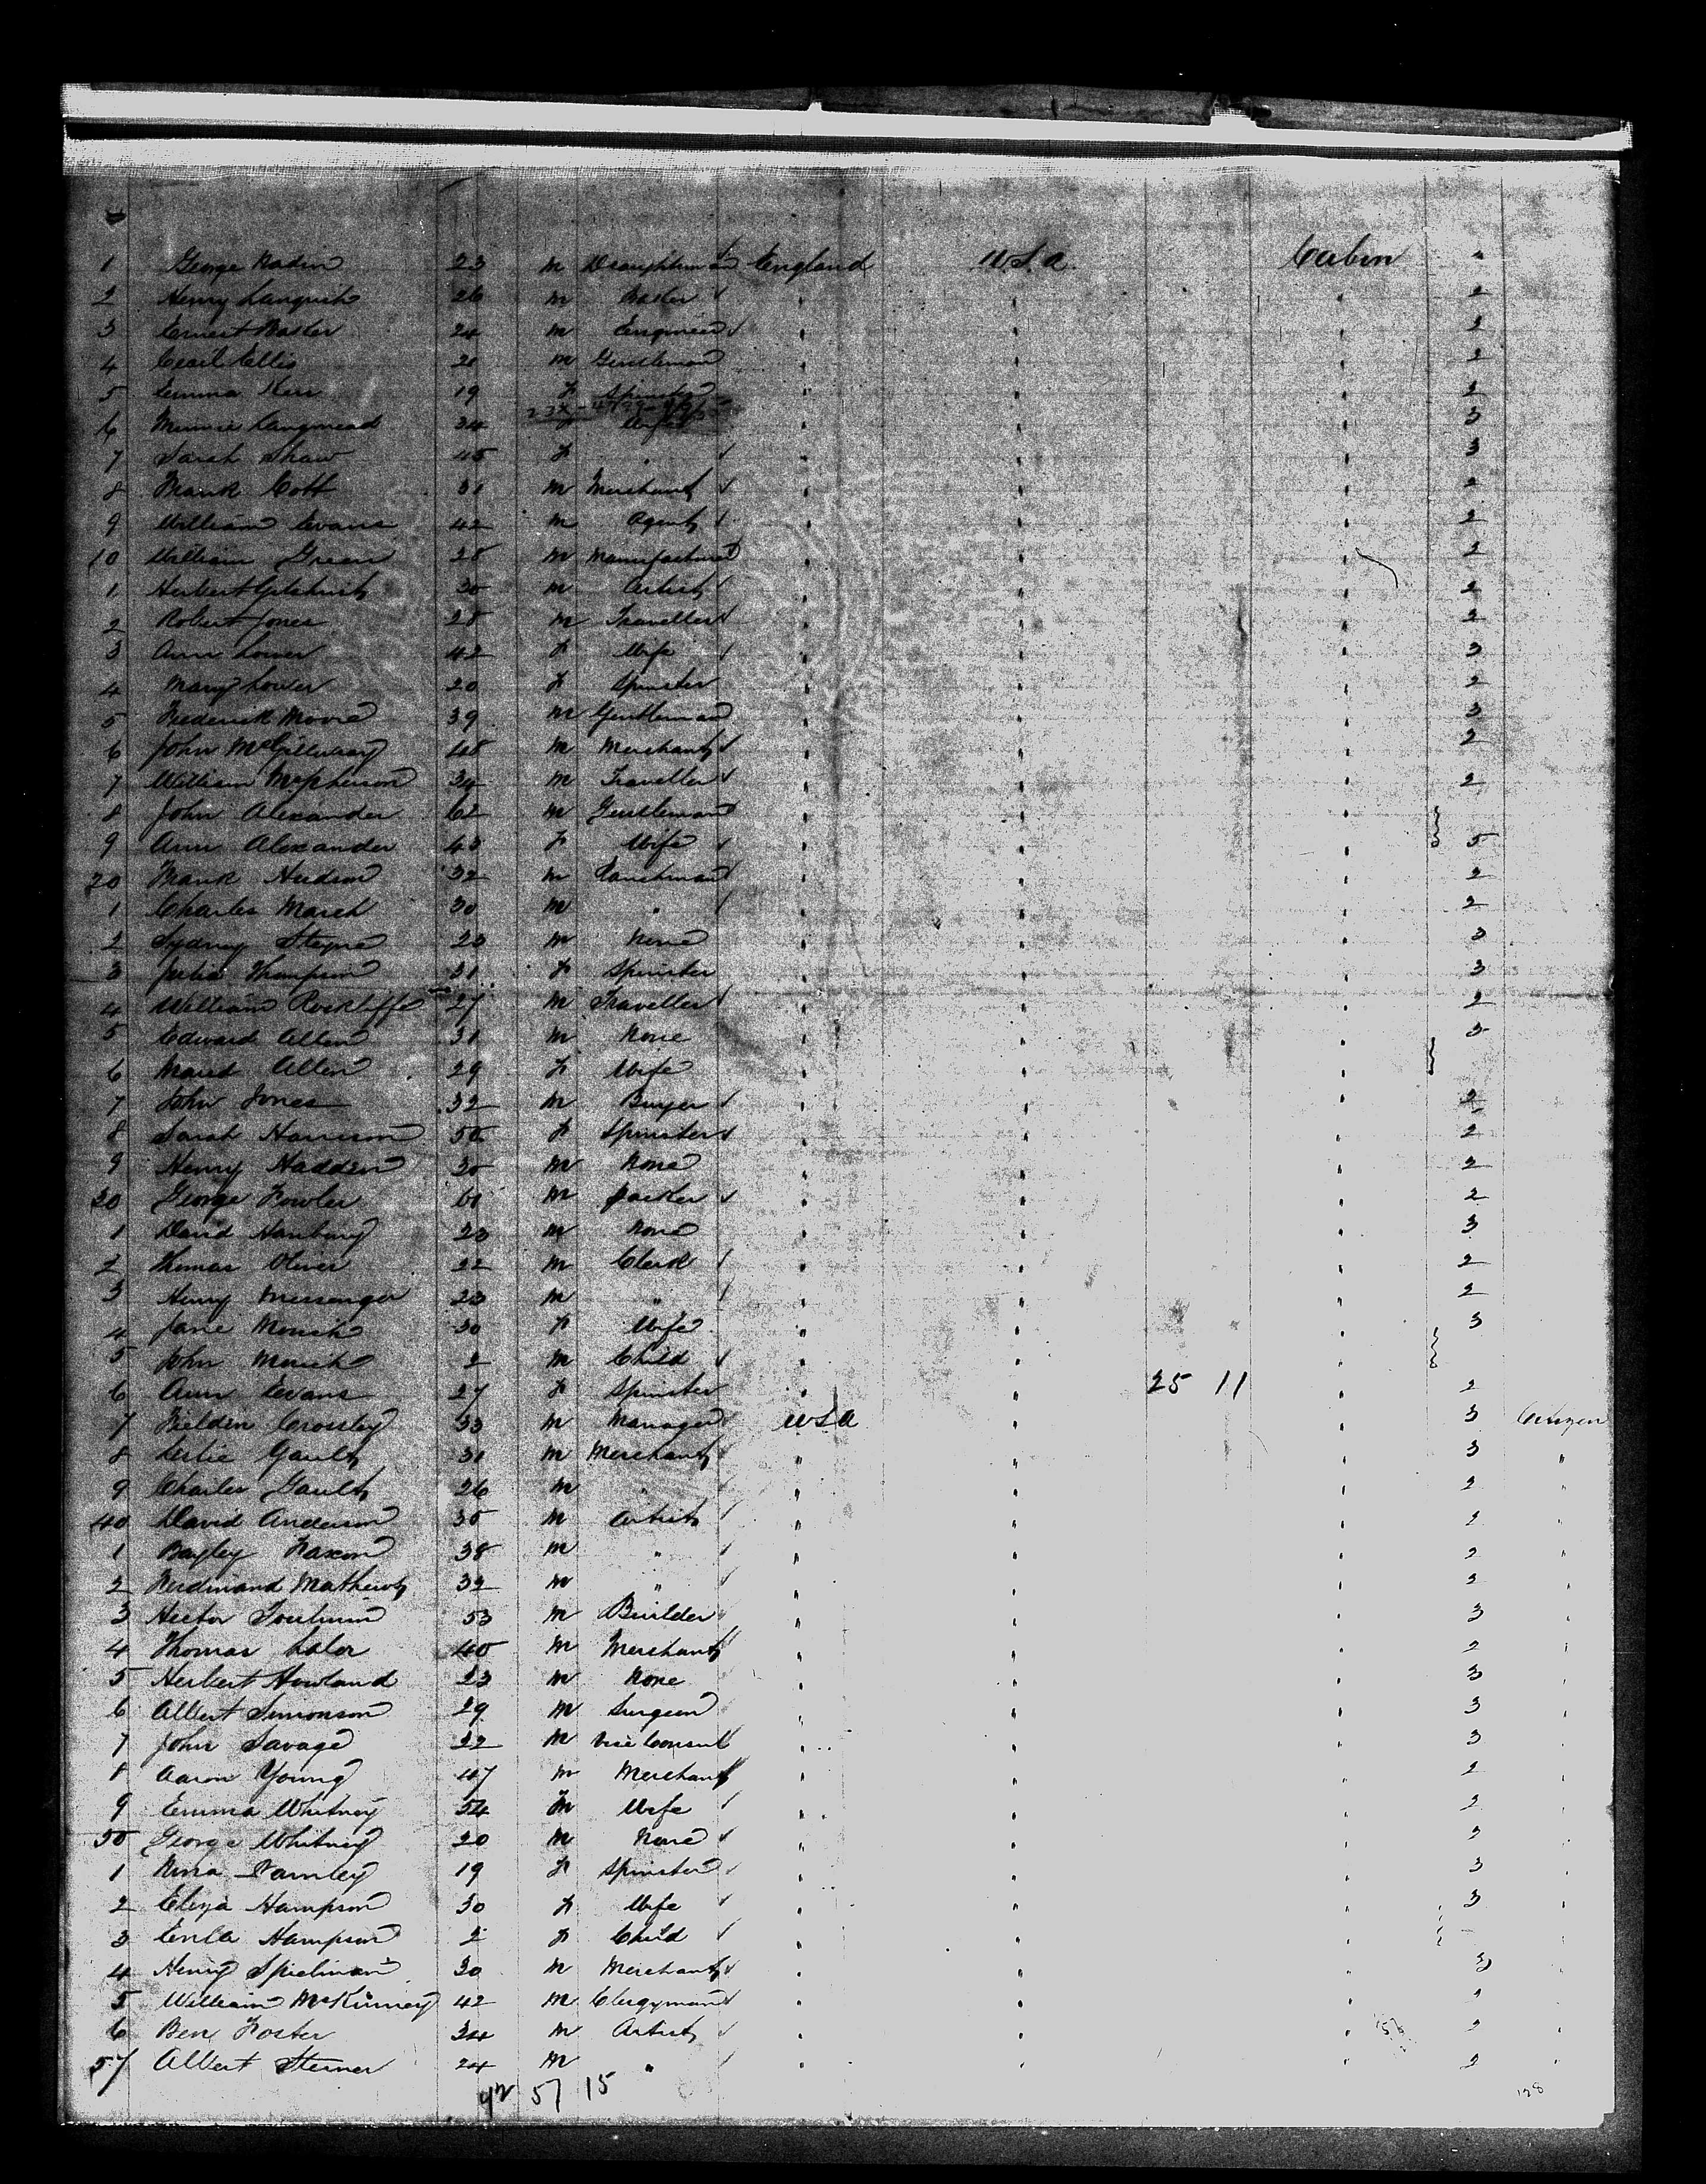 1 George 23 m Draughtsman England U.S.A. Cabin 2
2 Henry 26 m " " " 2
3 Ernest 24 m Engineer " " " 2
4 Cecil Ellis 21 m Gentleman " " " 2
5 Emma Kerr 19 f Spinster " " " 2
6 Minnie Langmead 34 f Wife " " " 3
7 Sarah Shaw 45 f " " " " 3
8 Frank Cott 31 m Merchant " " " 2
9 William Evans 42 m Agent " " " 2
10 William Green 28 m Manufacturer " " " 2
1 Herbert Gilchrist 30 m Artist " " " 2
2 Robert Jones 28 m Traveller " " " 2
3 Ann Lower 42 f Wife " " " 3
4 Mary Lower 20 f Spinster " " " 2
5 Frederick Moore 39 m Gentleman " " " 3
6 John McGillivray 48 m Merchant " " " 2
7 William McPherson 34 m Traveller " " " 2
8 John Alexander 62 m Gentleman " " "
9 Ann Alexander 43 f Wife " " " 5
20 Frank Hudson 32 m Ranchman " " " 2
1 Charles March 30 m " " " " 2
2 Sydney Steyne 23 m None " " " 3
3 Julia Thompson 31 f Spinster " " " 3
4 William Rockliffe 27 m Traveller " " " 2
5 Edward Allen 31 m None " " " 3
6 Maud Allen 29 f Wife " " "
7 John Jones 32 m Buyer " " " 2
8 Sarah Harrison 50 f Spinster " " " 2
9 Henry Hadden 30 m None " " " 2
30 George Fowler 61 m packer " " " 2
1 David Hanbury 23 m None " " " 3
2 Thomas Oliver 22 m Clerk " " " 2
3 Henry Messenger 23 m " " " " 2
4 Jane 30 f Wife " " " 3
5 John 2 m Child " " "
6 Ann Evans 27 f Spinster " " 25 11 " 2
7 Fielden Crossley 33 m Manager U S A " " 3 Citizen
8 Leslie Gault 31 m Merchant " " " 3 "
9 Charles Gault 26 m " " " " 2 "
40 David Anderson 35 m Artist " " " 2 "
1 Bayley 38 m " " " " 2 "
2 Ferdinand Mathews 32 m " " " " 2 "
3 Hector Toulmin 53 m Builder " " " 3 "
4 Thomas Lalor 40 m Merchant " " " 2 "
5 Herbert Howland 23 m None " " " 3 "
6 Albert Simonson 29 m Surgeon " " " 3 "
7 John Savage 22 m Vice Consul " " " 3 "
8 Aaron Young 47 m Merchant " " " 2 "
9 Emma Whitney 54 f Wife " " " 2 "
50 George Whitney 20 m None " " " 2 "
1 Nina 19 f Spinster " " " 3 "
2 Eliza Hampson 30 f Wife " " " 3 "
3 Hampson 2 f Child " " " "
4 Henry Spielman 30 m Merchant " " " 3 "
5 William McKinney 42 m Clergyman " " " 2 "
6 Ben Foster 34 m Artist " " " 2 "
57 Albert Sterner 24 m " " " " 2 "
42 57 15